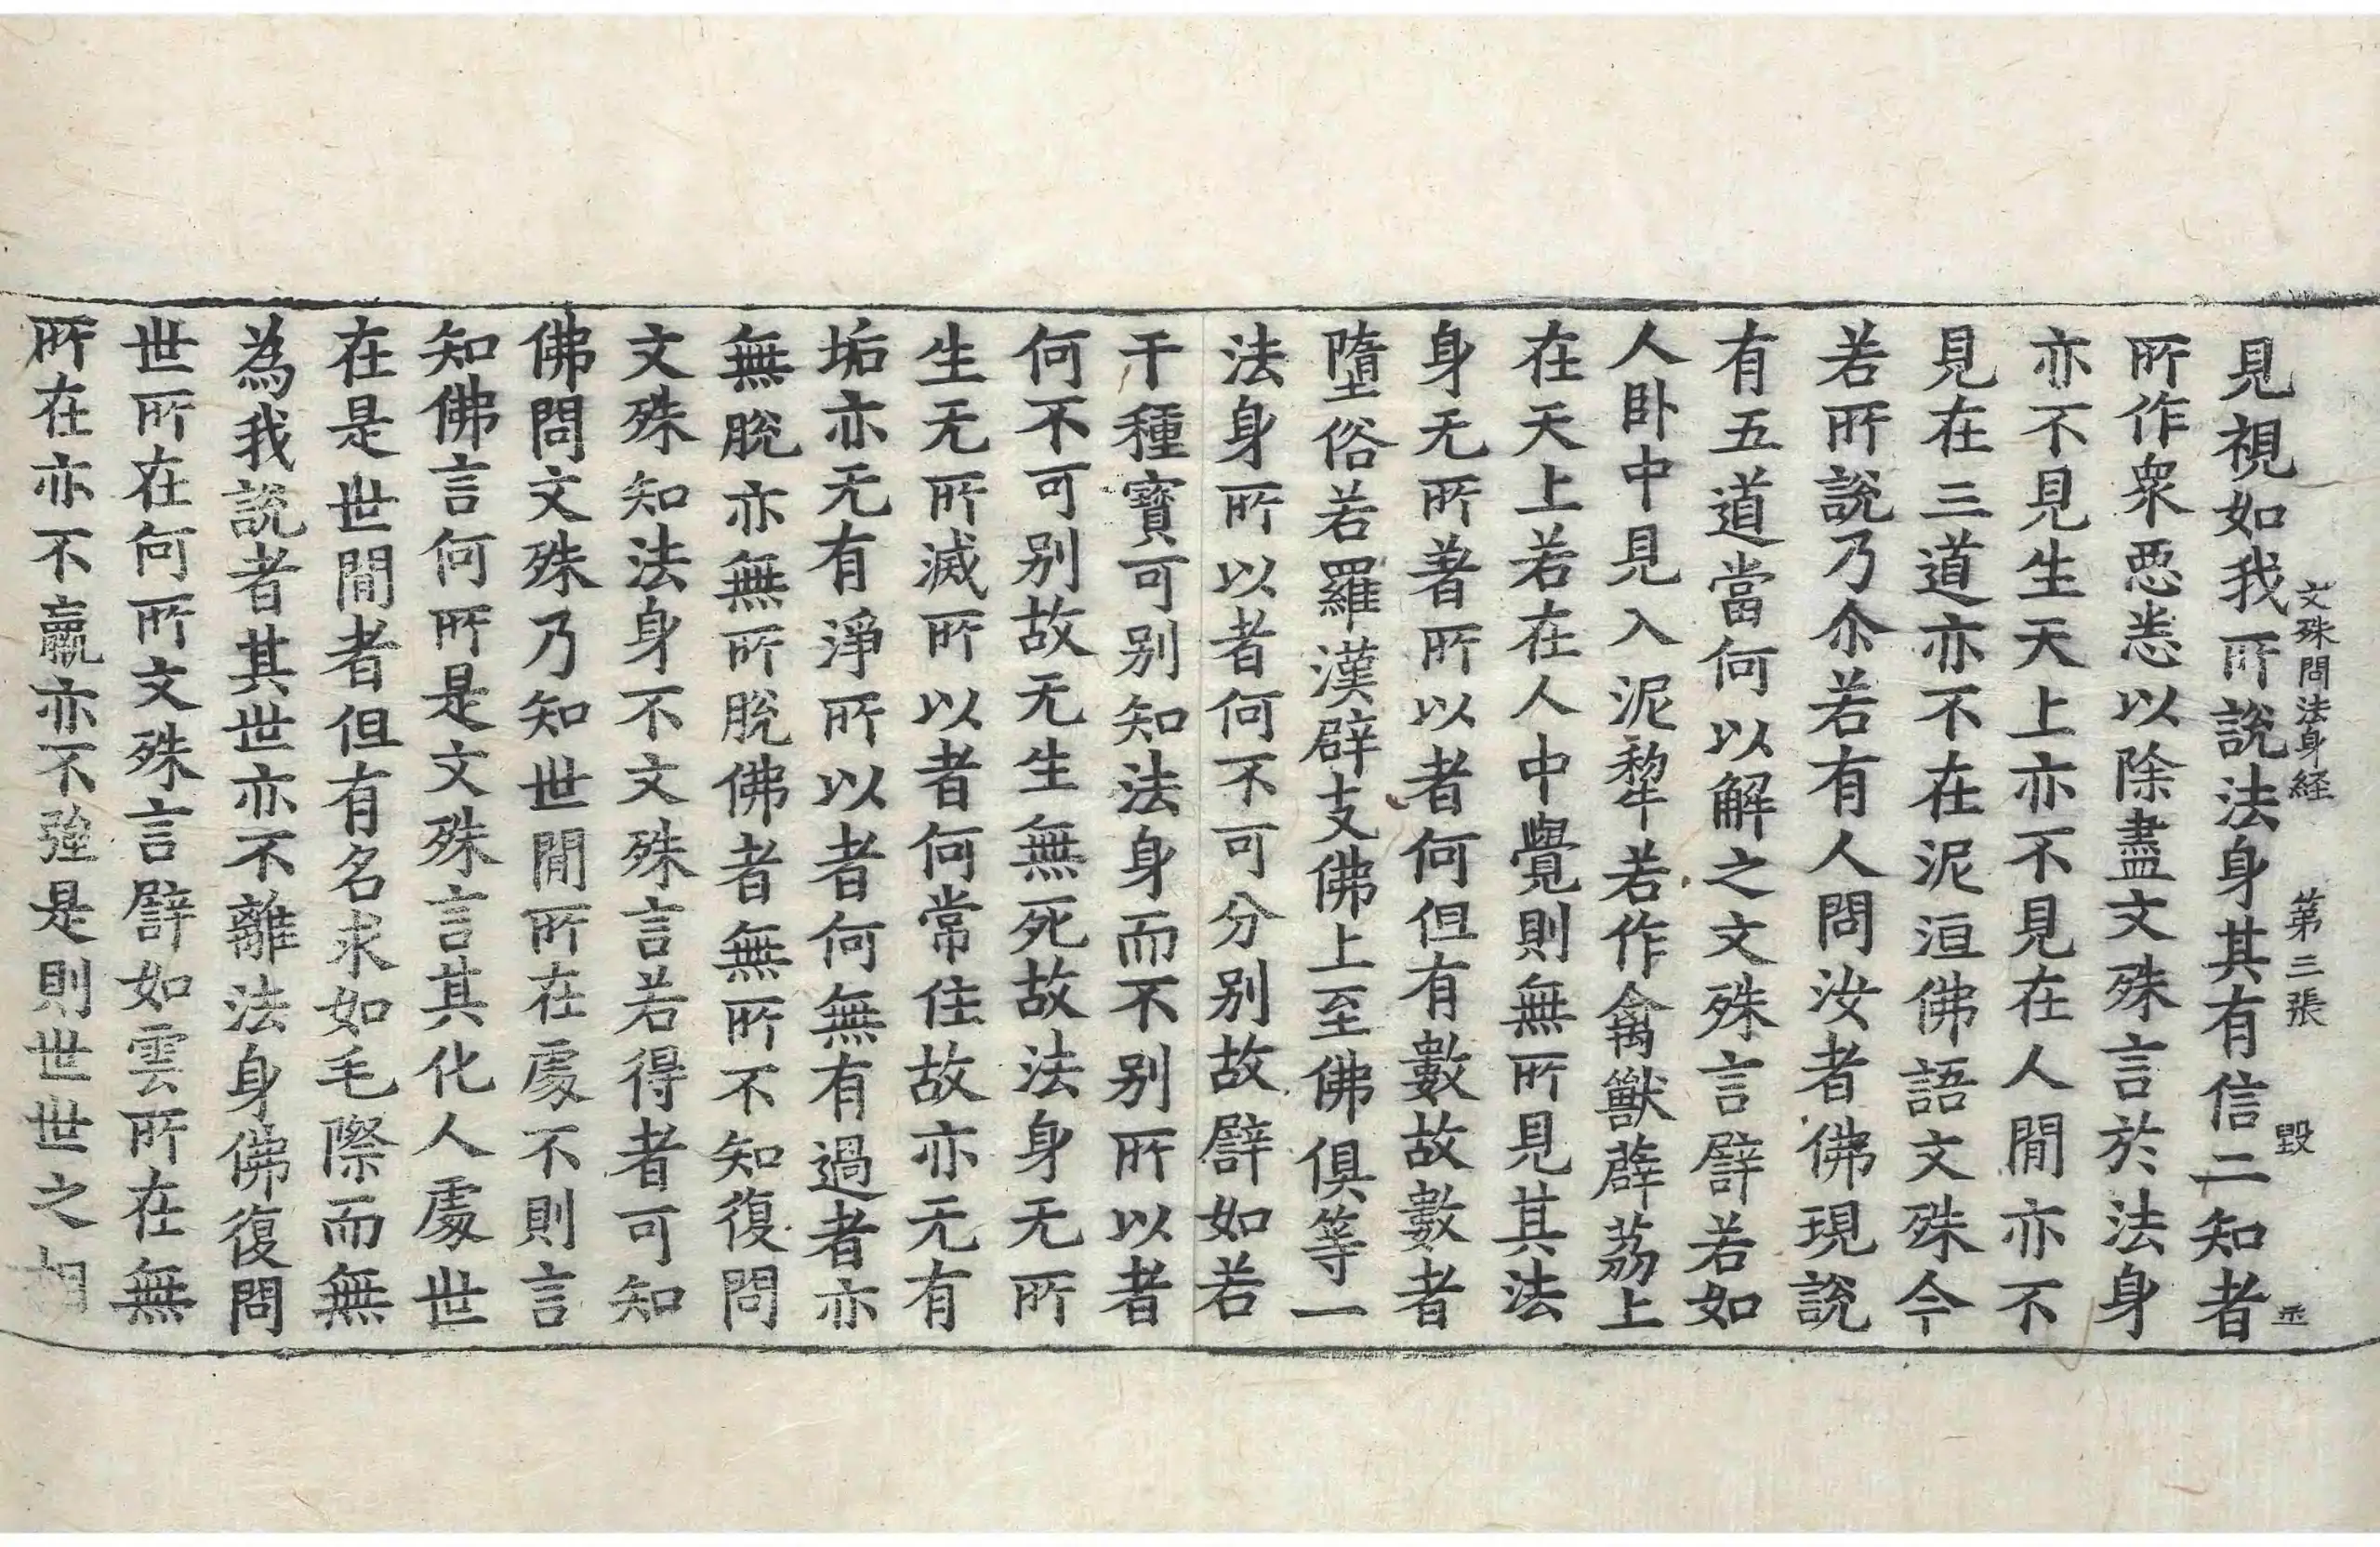 文殊問法身経 第三張 毀
見視如我所說法身其有信二知者
所作衆惡恙以除盡文殊言於法身
亦不見生天上亦不見在人閒亦不
見在三道亦不在泥洹佛語文殊今
若所說乃尒若有人問汝者佛現說
有五道當何以解之文殊言譬若如
人卧中見入泥犁若作禽獸薜荔上
在天上若在人中覺則無所見其法
身无所著所以者何但有數故數者
墮俗若羅漢辟支佛上至佛俱等一
法身所以者何不可分別故譬如若
干種寶可別知法身而不別所以者
何不可別故无生無死故法身无所
生无所滅所以者何常住故亦无有
垢亦无有淨所以者何無有過者亦
無脫亦無所脫佛者無所不知復問
文殊知法身不文殊言若得者可知
佛問文殊乃知世閒所在處不則言
知佛言何所是文殊言其化人處世
在是世閒者但有名求如毛際而無
為我說者其世亦不離法身佛復問
世所在何所文殊言譬如雲所在無
所在亦不羸亦不強是則世世之相